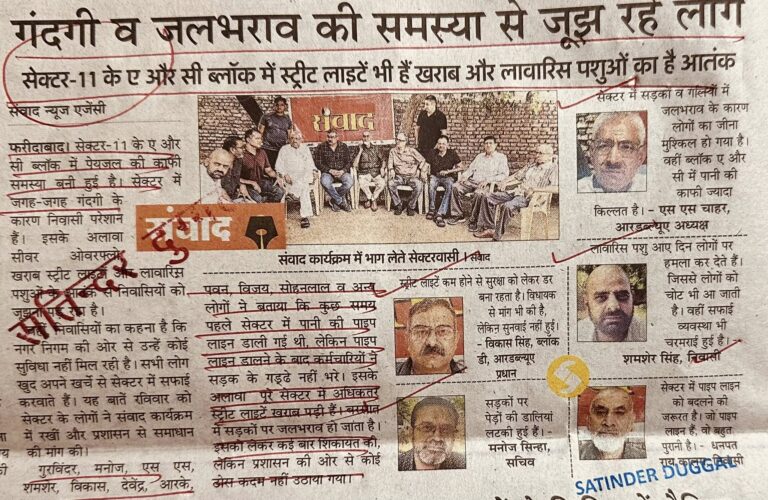 गंदगी व जलभराव की समस्या से जूझ रहे लोग
सेक्टर-11 के ए और सी ब्लॉक में स्ट्रीट लाइटें भी हैं खराब और लावारिस पशुओं का है आतंक
संवाद न्यूज एजेंसी
फरीदाबाद। सेक्टर-11 के ए और
सी ब्लॉक में पेयजल की काफी
समस्या बनी हुई है। सेक्टर में
जगह-जगह गंदगी के
कारण निवासी परेशान
हैं। इसके अलावा
सीवर ओवरफ्लो,
खराब स्ट्रीट लाइट और लावारिस
पशुओं के से निवासियों को
निवासियों का कहना है कि
नगर निगम की ओर से उन्हें कोई
सुविधा नहीं मिल रही है। सभी लोग
खुद अपने खर्चे से सेक्टर में सफाई
करवाते हैं। यह बातें रविवार को
सेक्टर के लोगों ने संवाद कार्यक्रम
में रखी और प्रशासन से समाधान
की मांग की।
गुरविंदर, मनोज, एस एस,
शमशेर, विकास, देवेंद्र, आरके,
संवाद
संवाद
संवाद कार्यक्रम में भाग लेते सेक्टरवासी। संवाद
पवन, विजय, सोहनलाल व अन्य
लोगों ने बताया कि कुछ समय
पहले सेक्टर में पानी की पाइप
लाइन डाली गई थी, लेकिन पाइप
लाइन डालने के बाद कर्मचारियों ने
सड़क के गड्ढे नहीं भरे। इसके
अलावा पूरे सेक्टर में अधिकतर
स्ट्रीट लाइटें खराब पड़ी हैं। बरसात
में सड़कों पर जलभराव हो जाता है।
इसको लेकर कई बार शिकायत की,
लेकिन प्रशासन की ओर से कोई
ठोस कदम नहीं उठाया गया।
स्ट्रीट लाइटें कम होने से सुरक्षा को लेकर डर
बना रहता है। विधायक
से मांग भी की है,
लेकिन सुनवाई नहीं हुई।
- विकास सिंह, ब्लॉक
डी, आरडब्ल्यूए
प्रधान
सड़कों पर
पेड़ों की डालियां
लटकी हुई हैं। -
मनोज सिन्हा,
सचिव
सेक्टर में सड़कों व गलियों में
जलभराव के कारण
लोगों का जीना
मुश्किल हो गया है।
वहीं ब्लॉक ए और
सी में पानी की
काफी ज्यादा
किल्लत है। - एस एस चाहर,
आरडब्ल्यूए अध्यक्ष
लावारिस पशु आए दिन लोगों पर
हमला कर देते हैं।
जिससे लोगों को
चोट भी आ जाती
है। वहीं सफाई
व्यवस्था भी
चरमराई हुई है।
शमशेर सिंह, निवासी
सेक्टर में पाइप लाइन
को बदलने की
जरूरत है। जो पाइप
लाइन हैं, वो बहुत
पुरानी है। - धनपत
राय निवासी
SATINDER DUGGAL